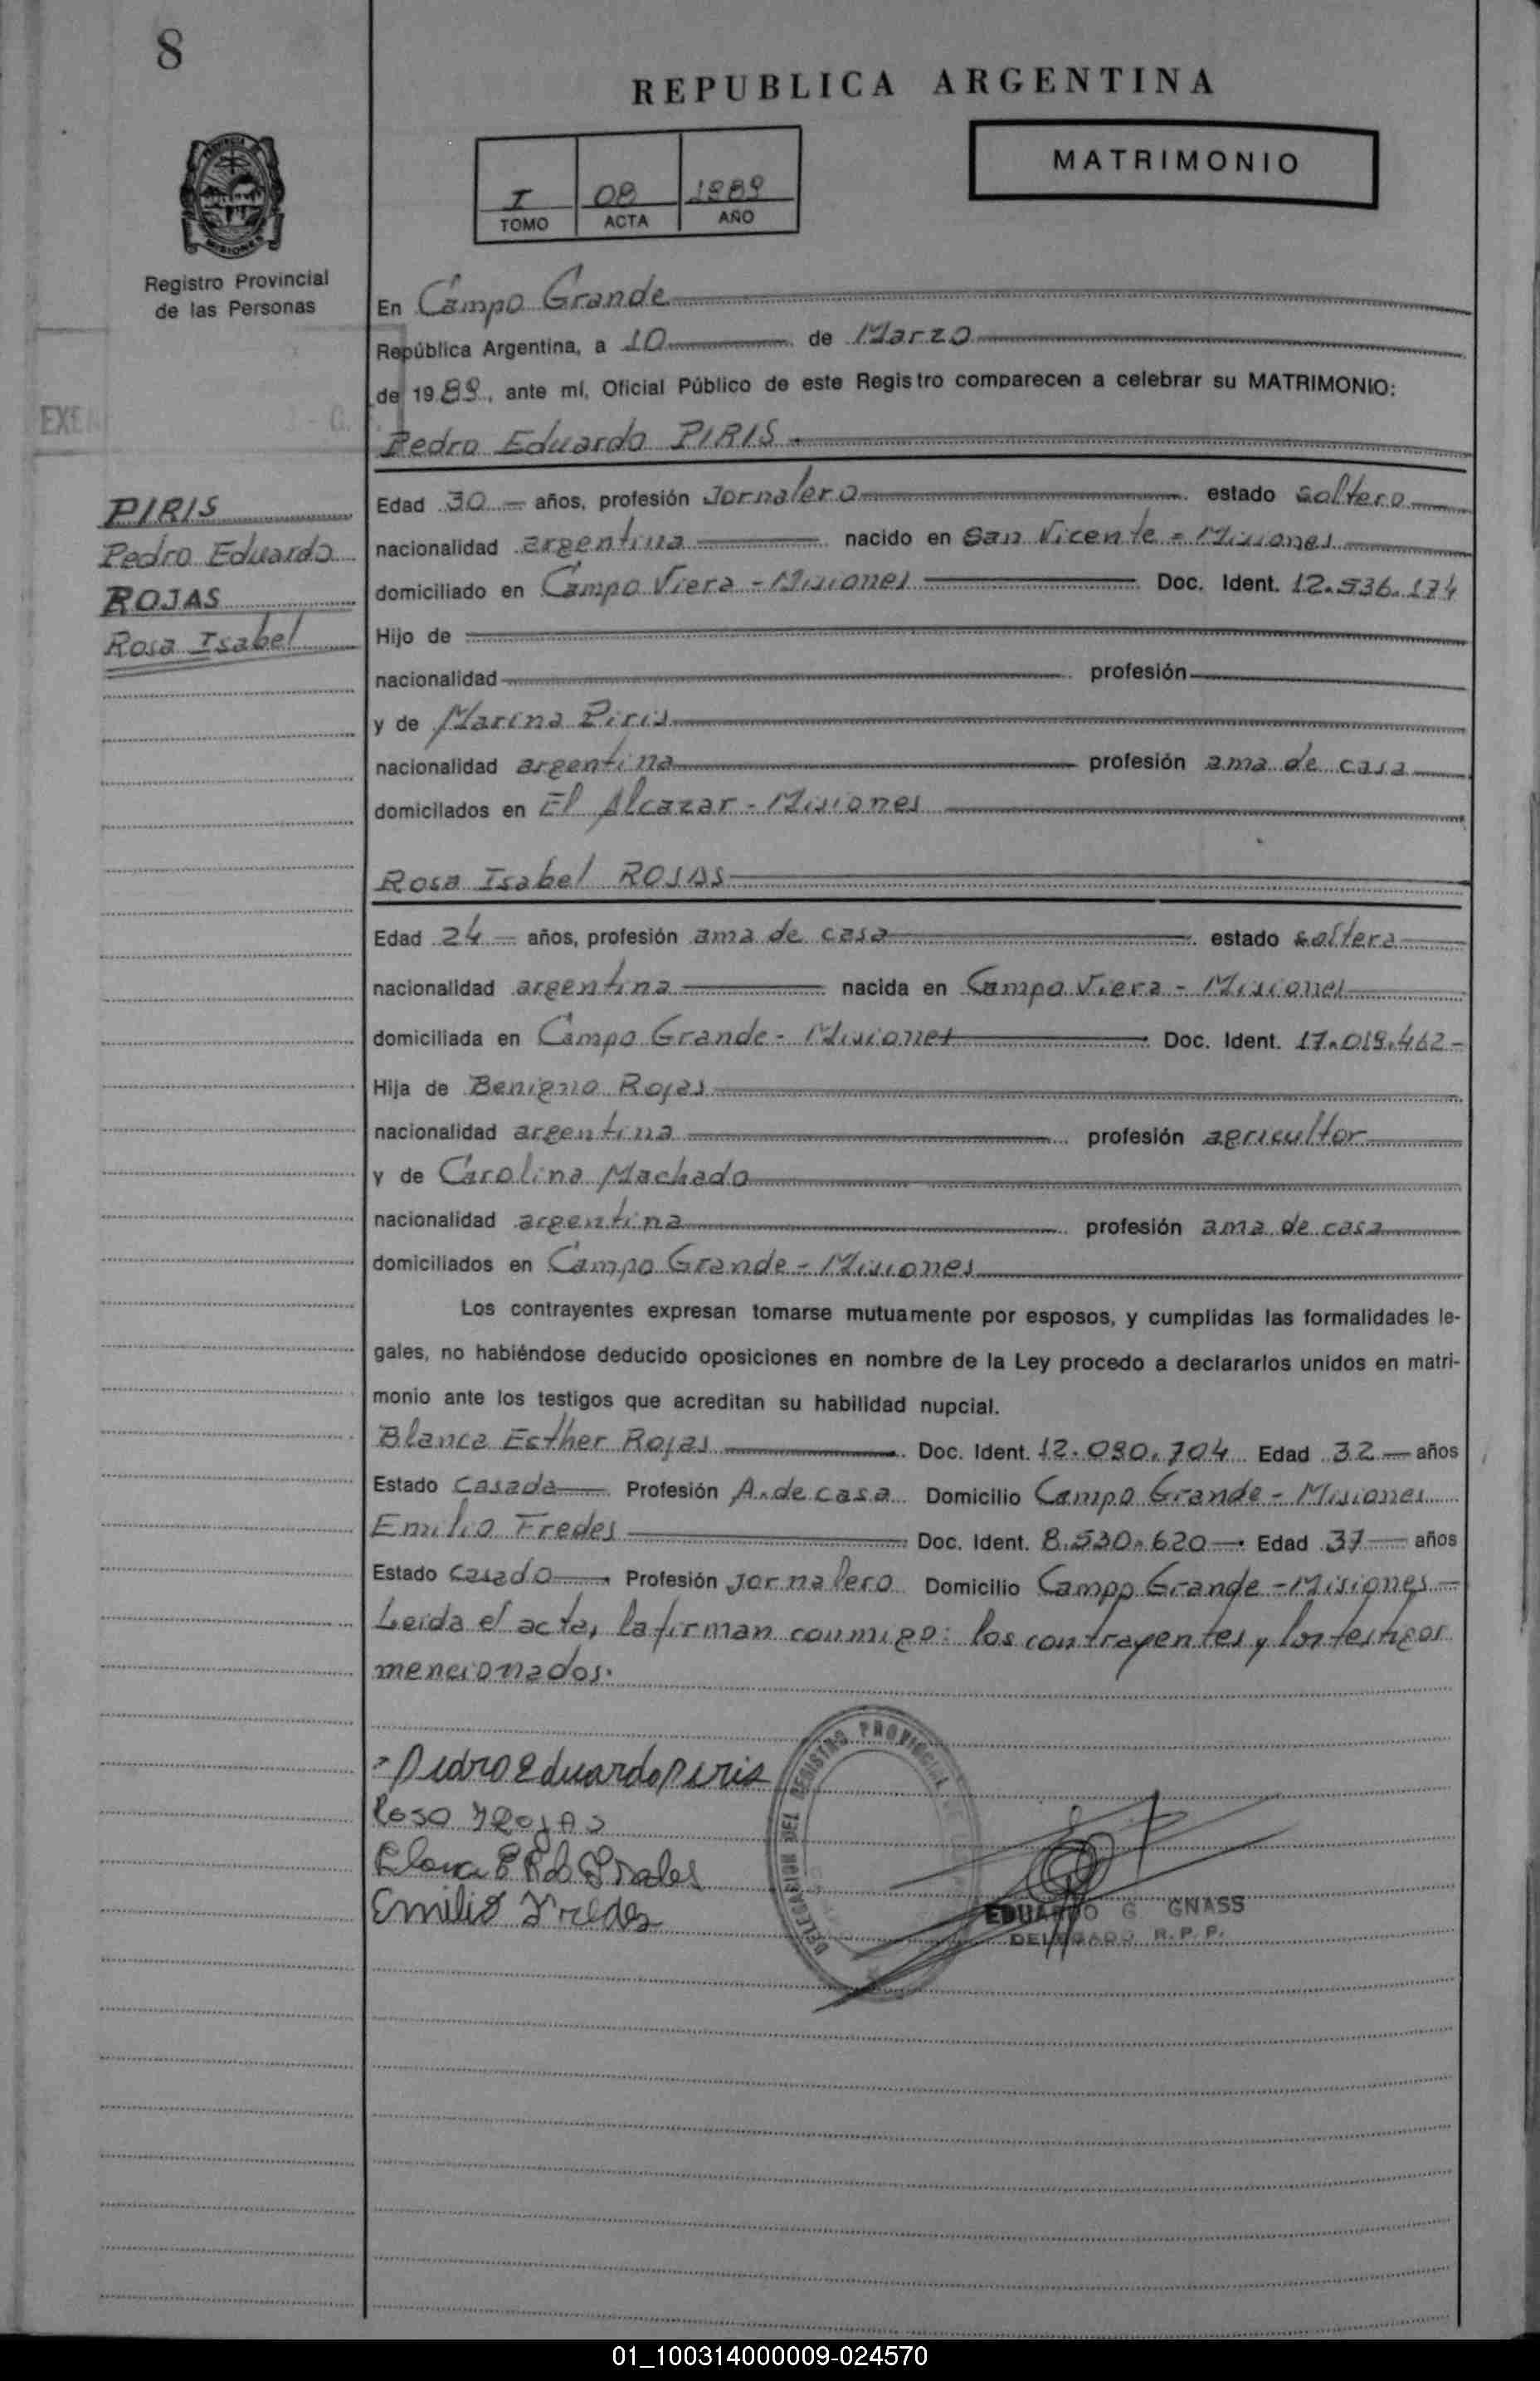 8
REPUBLICA ARGENTINA
MATRIMONIO
I 08 1989
TOMO ACTA AÑO
PROVINCIA
MISIONES
Registro Provincial
de las Personas
En Campo Grande
República Argentina, a 10 de Marzo
de 1989, ante mí, Oficial Público de este Registro comparecen a celebrar su MATRIMONIO:
Pedro Eduardo PIRIS
PIRIS
Pedro Eduardo
ROJAS
Rosa Isabel
Edad 30 años, profesión Jornalero estado soltero
nacionalidad argentina nacido en San Vicente - Misiones
domiciliado en Campo Viera - Misiones Doc. Ident. 12.536.174
Hijo de
nacionalidad profesión
y de Marina Piris
nacionalidad argentina profesión ama de casa
domicilados en El Alcazar - Misiones
Rosa Isabel ROJAS
Edad 24 años, profesión ama de casa estado soltera
nacionalidad argentina nacida en Campo Viera - Misiones
domiciliada en Campo Grande - Misiones Doc. Ident. 17.019.462
Hija de Benigno Rojas
nacionalidad argentina profesión agricultor
y de Carolina Machado
nacionalidad argentina profesión ama de casa
domiciliados en Campo Grande - Misiones
Los contrayentes expresan tomarse mutuamente por esposos, y cumplidas las formalidades le-
gales, no habiéndose deducido oposiciones en nombre de la Ley procedo a declararlos unidos en matri-
monio ante los testigos que acreditan su habilidad nupcial.
Blanca Esther Rojas Doc. Ident. 12.090.704 Edad 32 años
Estado Casada Profesión A. de casa Domicilio Campo Grande - Misiones
Emilio Fredes Doc. Ident. 8.530.620 Edad 37 años
Estado casado Profesión Jornalero Domicilio Campo Grande - Misiones
Leida el acta, la firman conmigo: los contrayentes y los testigos
mencionados.
Pedro Eduardo piris
Rosa I Rojas
Emilio Fredes
DELEGACION DEL REGISTRO PROVINCIAL
EDUARDO G GNASS
DELEGADO R. P. P.
01_100314000009-024570